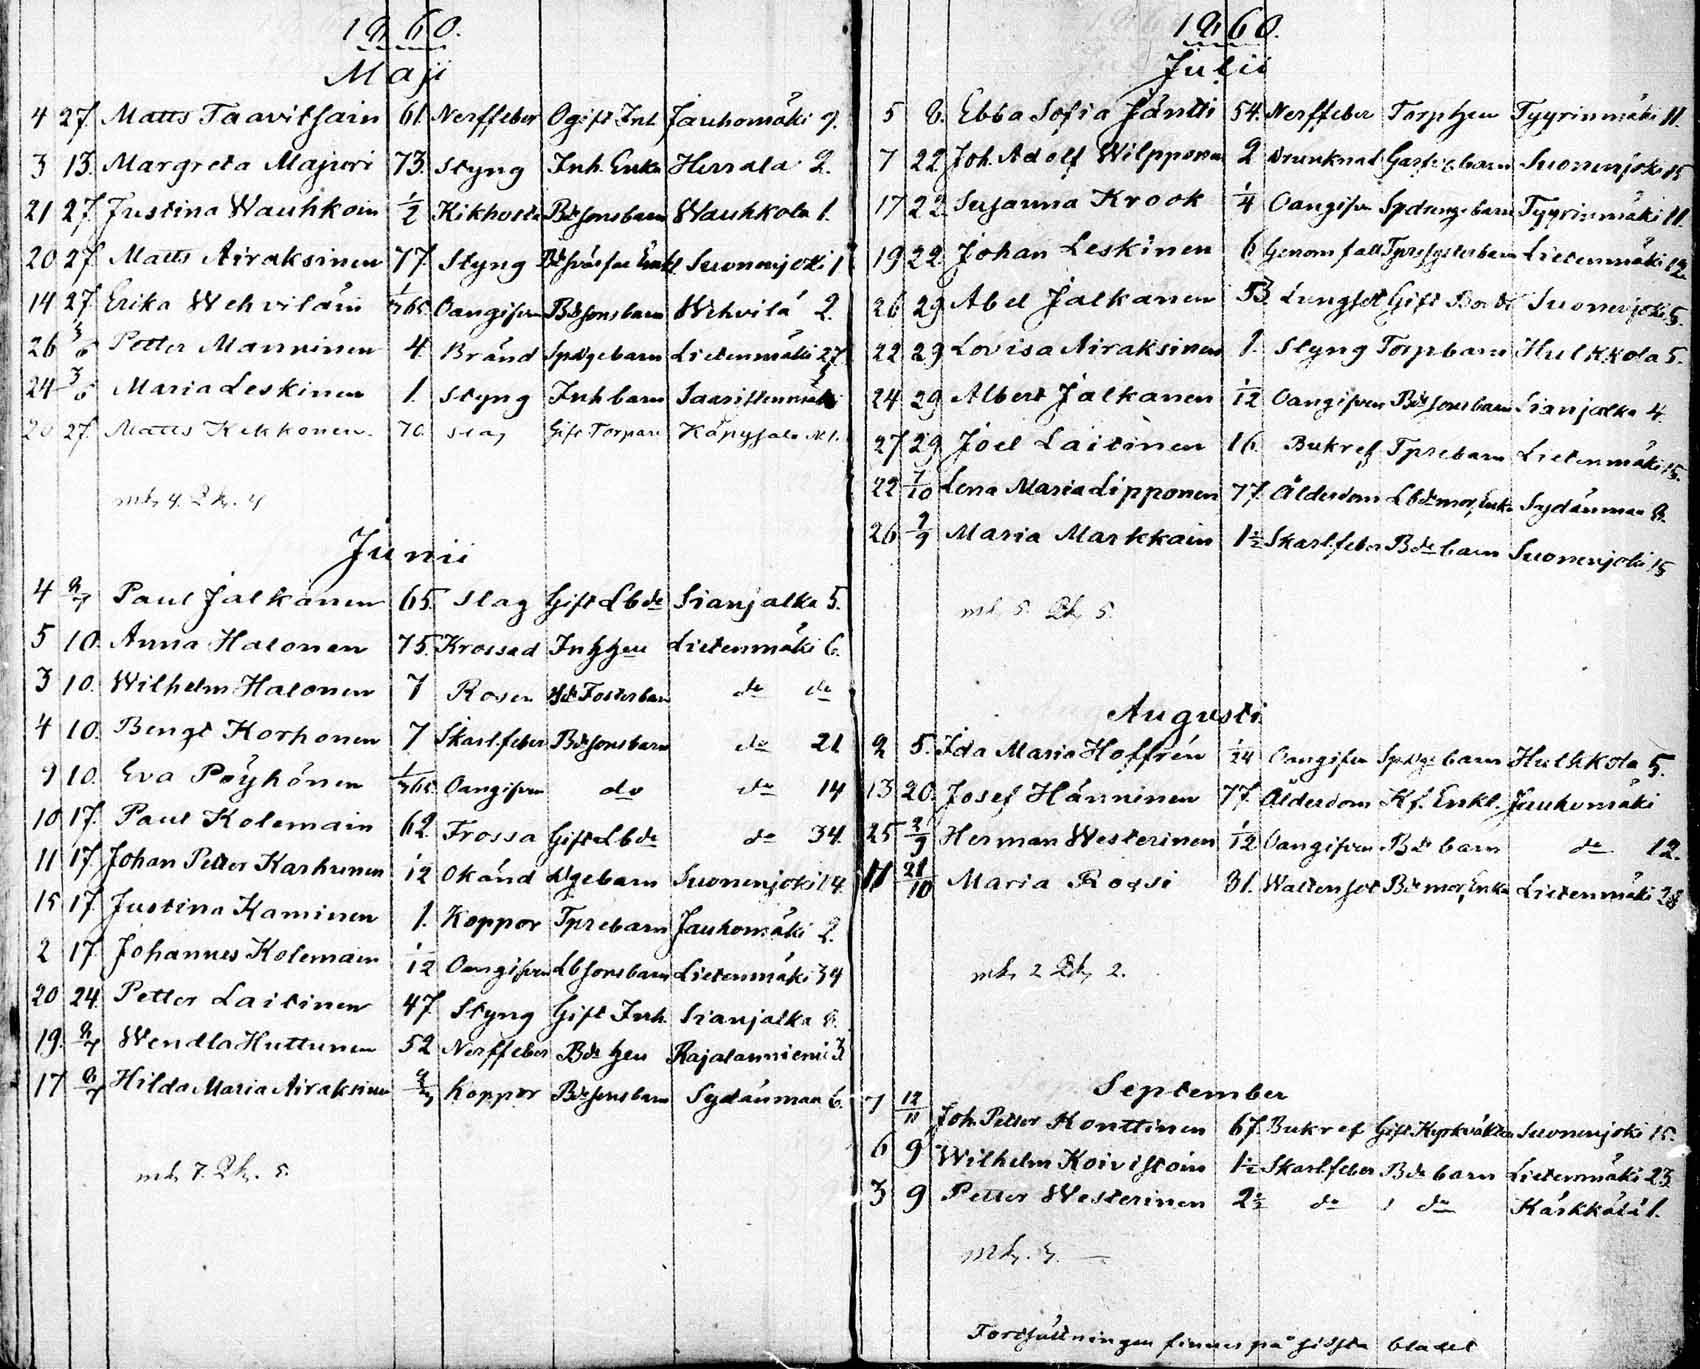 1860.
Maji
4 27. Matts Taavitsain 61. Nerffeber Ogift Inh Jauhomäki 9.
3 13. Margreta Majuri 73. Styng Inh. Enka Herrala 2.
21 27. Justina Wauhkoin ½ Kikhosta Bdesonsbarn Wauhkola 1.
20 27 Matts Airaksinen 77 Styng Suonenjoki 1
14 27. Erika Wehviläin 1/365 Oangifven Bdesonsbarn Wehvilä 2.
26 3/6 Petter Manninen 4. Bränd Spdgebarn Lietenmäki 27.
24 3/6 Maria Leskinen 1. Styng Inhbarn Saaristenmäki
20 27 Matts Kekkonen. 70 Slag Gift Torpare Käpysalo №1.
mk. 4. Qk. 4
Junii
4 8/7 Paul Jalkanen 65. Slag Gift Lbde Sianjalka 5.
5 10. Anna Halonen 75. Krossad Inhhru Lietenmäki 6.
3 10. Wilhelm Halonen 7 Rosen Fosterbarn do do
4 10. Bengt Korhonen 7 Skarlfeber Bdesonsbarn do 21
9 10. Eva Pöyhönen 1/365 Oangifven do do 14
10 17. Paul Kolemain 62. Frossa Gift Lbde do 34.
11 17. Johan Petter Karhunen 1/12 Okänd dgebarn Suonenjoki 14.
15 17. Justina Kaminen 1. Koppor Tprebarn Jauhomäki 2.
2 17. Johannes Kolemain 1/12 Oangifven Lbsonsbarn Lietenmäki 34
20 24. Petter Laitinen 47 Styng Gift Inh. Sianjalka 8.
19. 8/7 Wendla Huttunen 52 Nerffeber Bde hru Rajalanniemi 3.
17 8/7 Hilda Maria Airaksinen Koppor Bdesonsbarn Sydänmaa 6.
mk. 7. Qk. 5.
1860.
Julii
5 8. Ebba Sofia Jäntti 54. Nerffeber Torphru Tyyrinmäki 11.
7 22. Joh. Adolf Wilpponen 2 Drunknat barn Suonenjoki 15
17 22. Susanna Krook ¼ Oangifven Spdrengebarn Tyyrinmäki 11.
19 22 Johan Leskinen 6 Genom fall Tpresysterbarn Lietenmäki 12.
26 29. Abel Jalkanen 53. Lungsot Gift Bonde Suonenjoki 5.
22 29 Lovisa Airaksinen 1. Styng Torpbarn Hulkkola 5.
24 29 Albert Jalkanen 1/12 Oangifven Bdesonsbarn Sianjalka 4.
27 29 Joel Laitinen 16. Bukref Tprebarn Lietenmäki 15.
22 7/10 Lena Maria Lipponen 77 Ålderdom Lbdemor, Enka Sydänmaa 8.
26 2/9 Maria Markkain 1½ Skarlfeber Bdebarn Suonenjoki 15
mk. 5. Qk. 5.
Augusti
2 5. Ida Maria Hoffrén 1/24 Oangifven barn Hulkkola 5.
13 20. Josef Hänninen 77 Ålderdom Kf. Enkl. Jauhomäki
25 2/9 Herman Westerinen 1/12 Oangifven Bde barn do 12.
11 21/10 Maria Rossi 81. Wattensot Bdemor, Enka Lietenmäki 28
mk. 2 Qk. 2.
September
7 12/11 Joh. Petter Konttinen 67. Bukref Gift Kyrkväktare Suonenjoki 15.
6 9 Wilhelm Koivistoin 1½ Skarlfeber Bde barn Lietenmäki 23
3 9 Petter Westerinen 2½ do do Kärkkälä 1.
mk. 3. —
Fortsättningen finnes på sidsta bladet